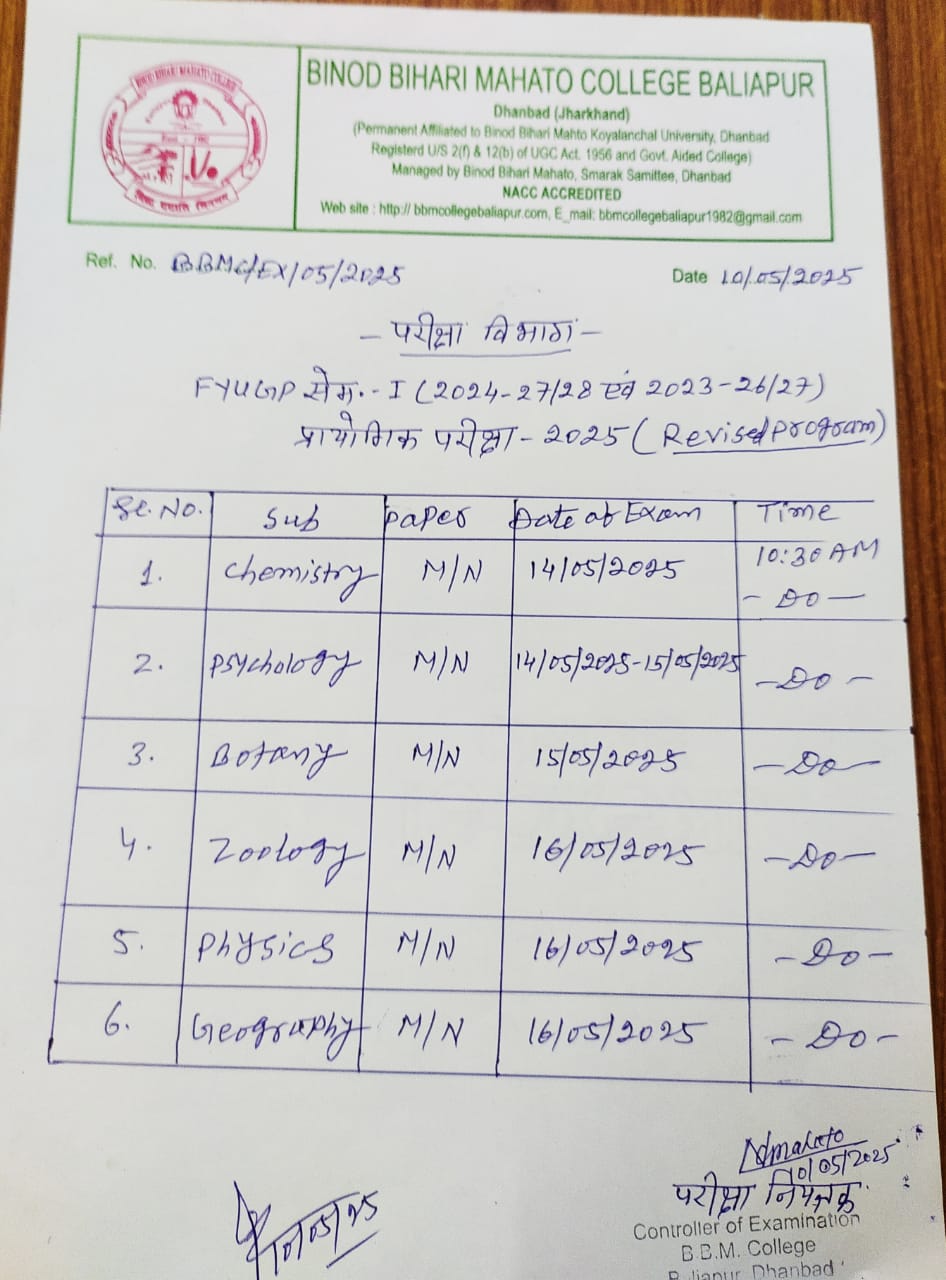 BINOD BIHARI MAHATO COLLEGE
BINOD BIHARI MAHATO COLLEGE BALIAPUR
Dhanbad (Jharkhand)
(Permanent Affiliated to Binod Bihari Mahto Koyalanchal University, Dhanbad
Registerd U/S 2(f) & 12(b) of UGC Act. 1956 and Govt. Aided College)
Managed by Binod Bihari Mahato, Smarak Samittee, Dhanbad
NACC ACCREDITED
Web site : http:// bbmcollegebaliapur.com, E_mail: bbmcollegebaliapur1982@gmail.com
Ref. No. BBMC/EX/05/2025 Date 10/05/2025
- परीक्षा विभाग -
FYUGP सेम.- I (2024-27/28 एवं 2023-26/27)
प्रायोगिक परीक्षा - 2025 (Revised program)
Sl. No. Sub Paper Date of Exam Time
1. Chemistry M/N 14/05/2025 10:30 AM
- Do -
2. Psychology M/N 14/05/2025-15/05/2025 - Do -
3. Botany M/N 15/05/2025 - Do -
4. Zoology M/N 16/05/2025 - Do -
5. Physics M/N 16/05/2025 - Do -
6. Geography M/N 16/05/2025 - Do -
10/05/25
Mahato
10/05/2025
परीक्षा नियंत्रक
Controller of Examination
B.B.M. College
Baliapur, Dhanbad